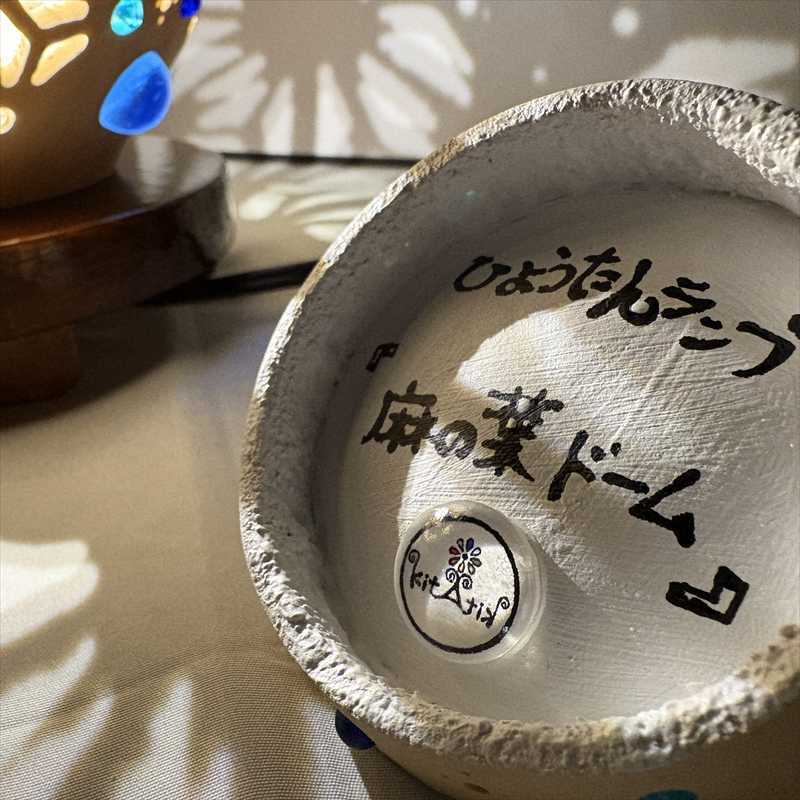 ひょうたんランプ
『麻の葉ドーム』
kitAtik